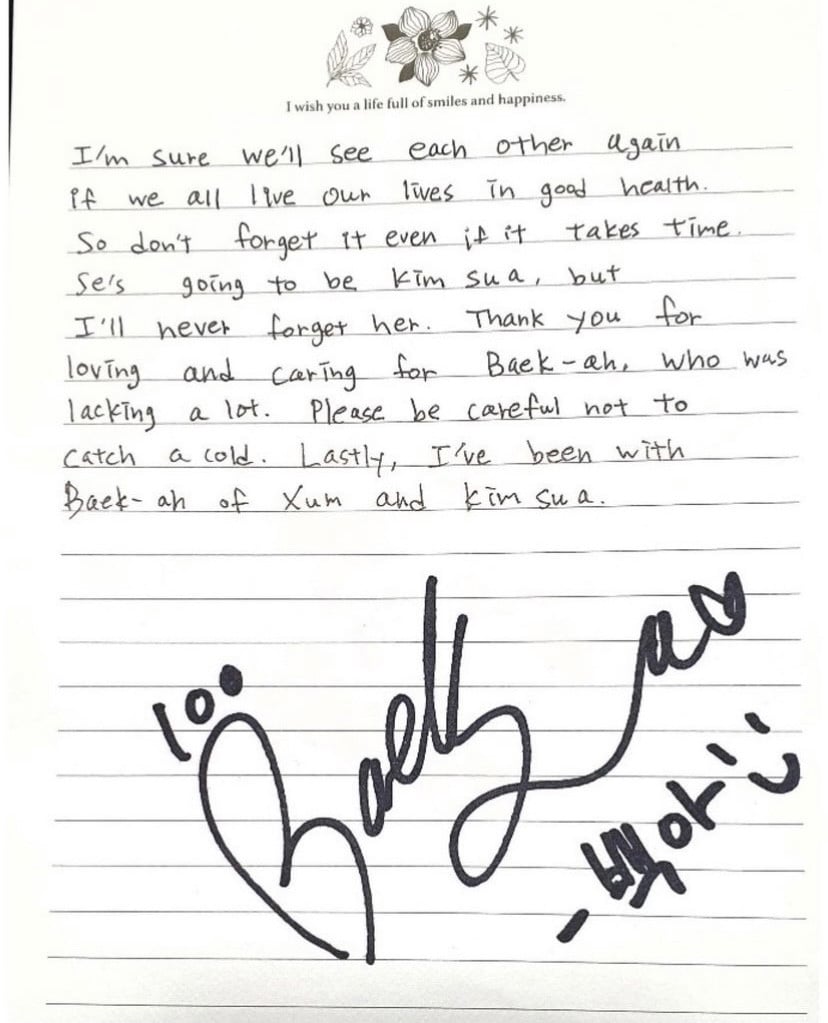 I wish you a life full of smiles and happiness.
I'm sure we'll see each other again
if we all live our lives in good health.
So don't forget it even if it takes time.
Se's going to be kim sua, but
I'll never forget her. Thank you for
loving and caring for Baek-ah, who was
lacking a lot. Please be careful not to
catch a cold. Lastly, I've been with
Baek-ah of Xum and kim sua.
100
Baek a
-백아